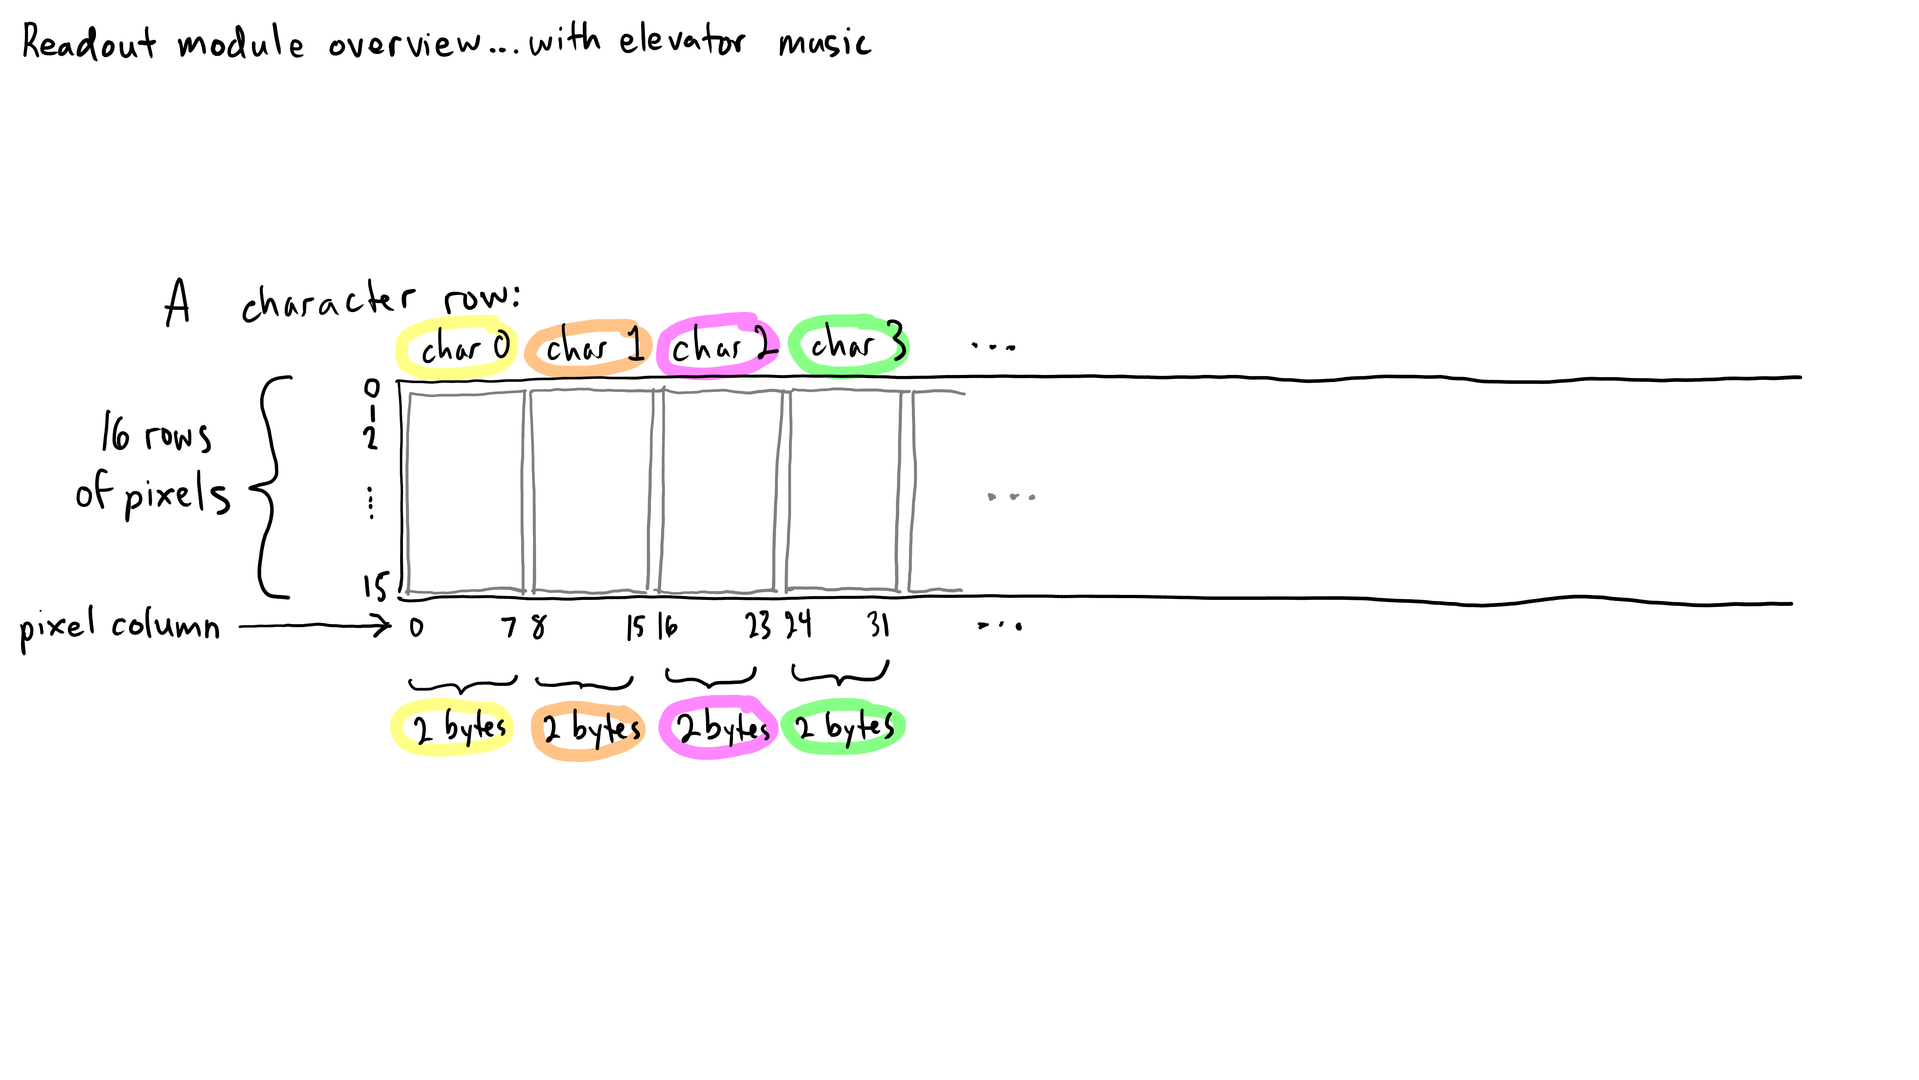 Readout module overview...with elevator music
A character row:
char 0 char 1 char 2 char 3 ...
0
1
2
⋮
15
16 rows
of pixels
...
pixel column → 0 7 8 15 16 23 24 31 ...
2 bytes 2 bytes 2 bytes 2 bytes